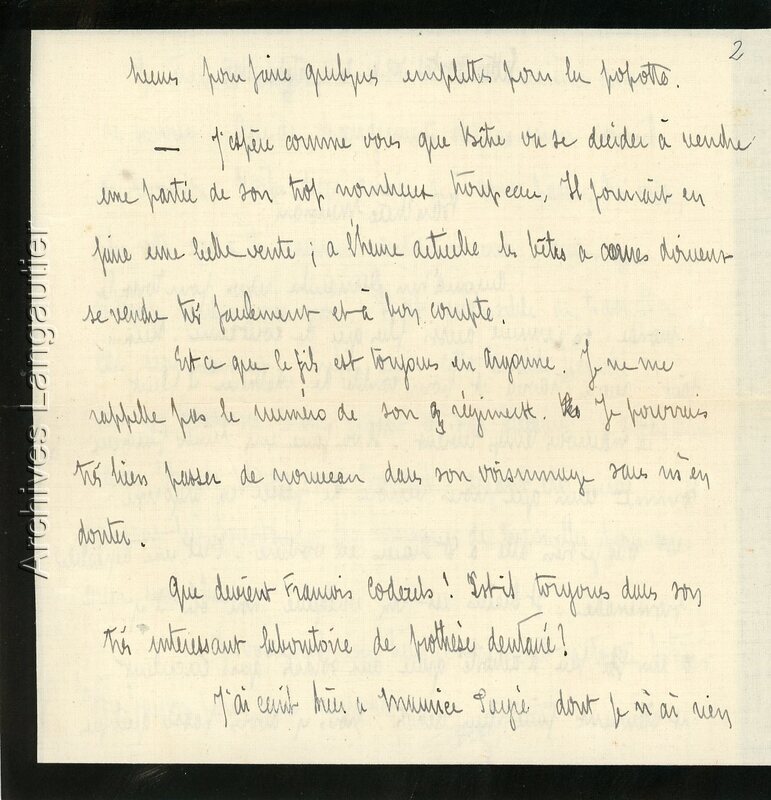 2
heures pour faire quelques emplettes pour la popotte.
— J'espère comme vous que va se decider à vendre
une partie de son trop nombreux troupeau. Il pourrait en
faire une belle vente ; a l'heure actuelle les bêtes a cornes doivent
se vendre très facilement et à bon compte.
Est ce que le fils est toujours en Argonne. Je ne me
rappelle pas le numéro de son régiment. Je pourrais
très bien passer de nouveau dans son voisinnage sans m'en
douter.
Que devient Francois Codercls ! Est il toujours dans son
très interessant laboratoire de prothèse dentaire ?
J'ai ecrit hier a Maurice dont je n'ai rien
Archives Langautier